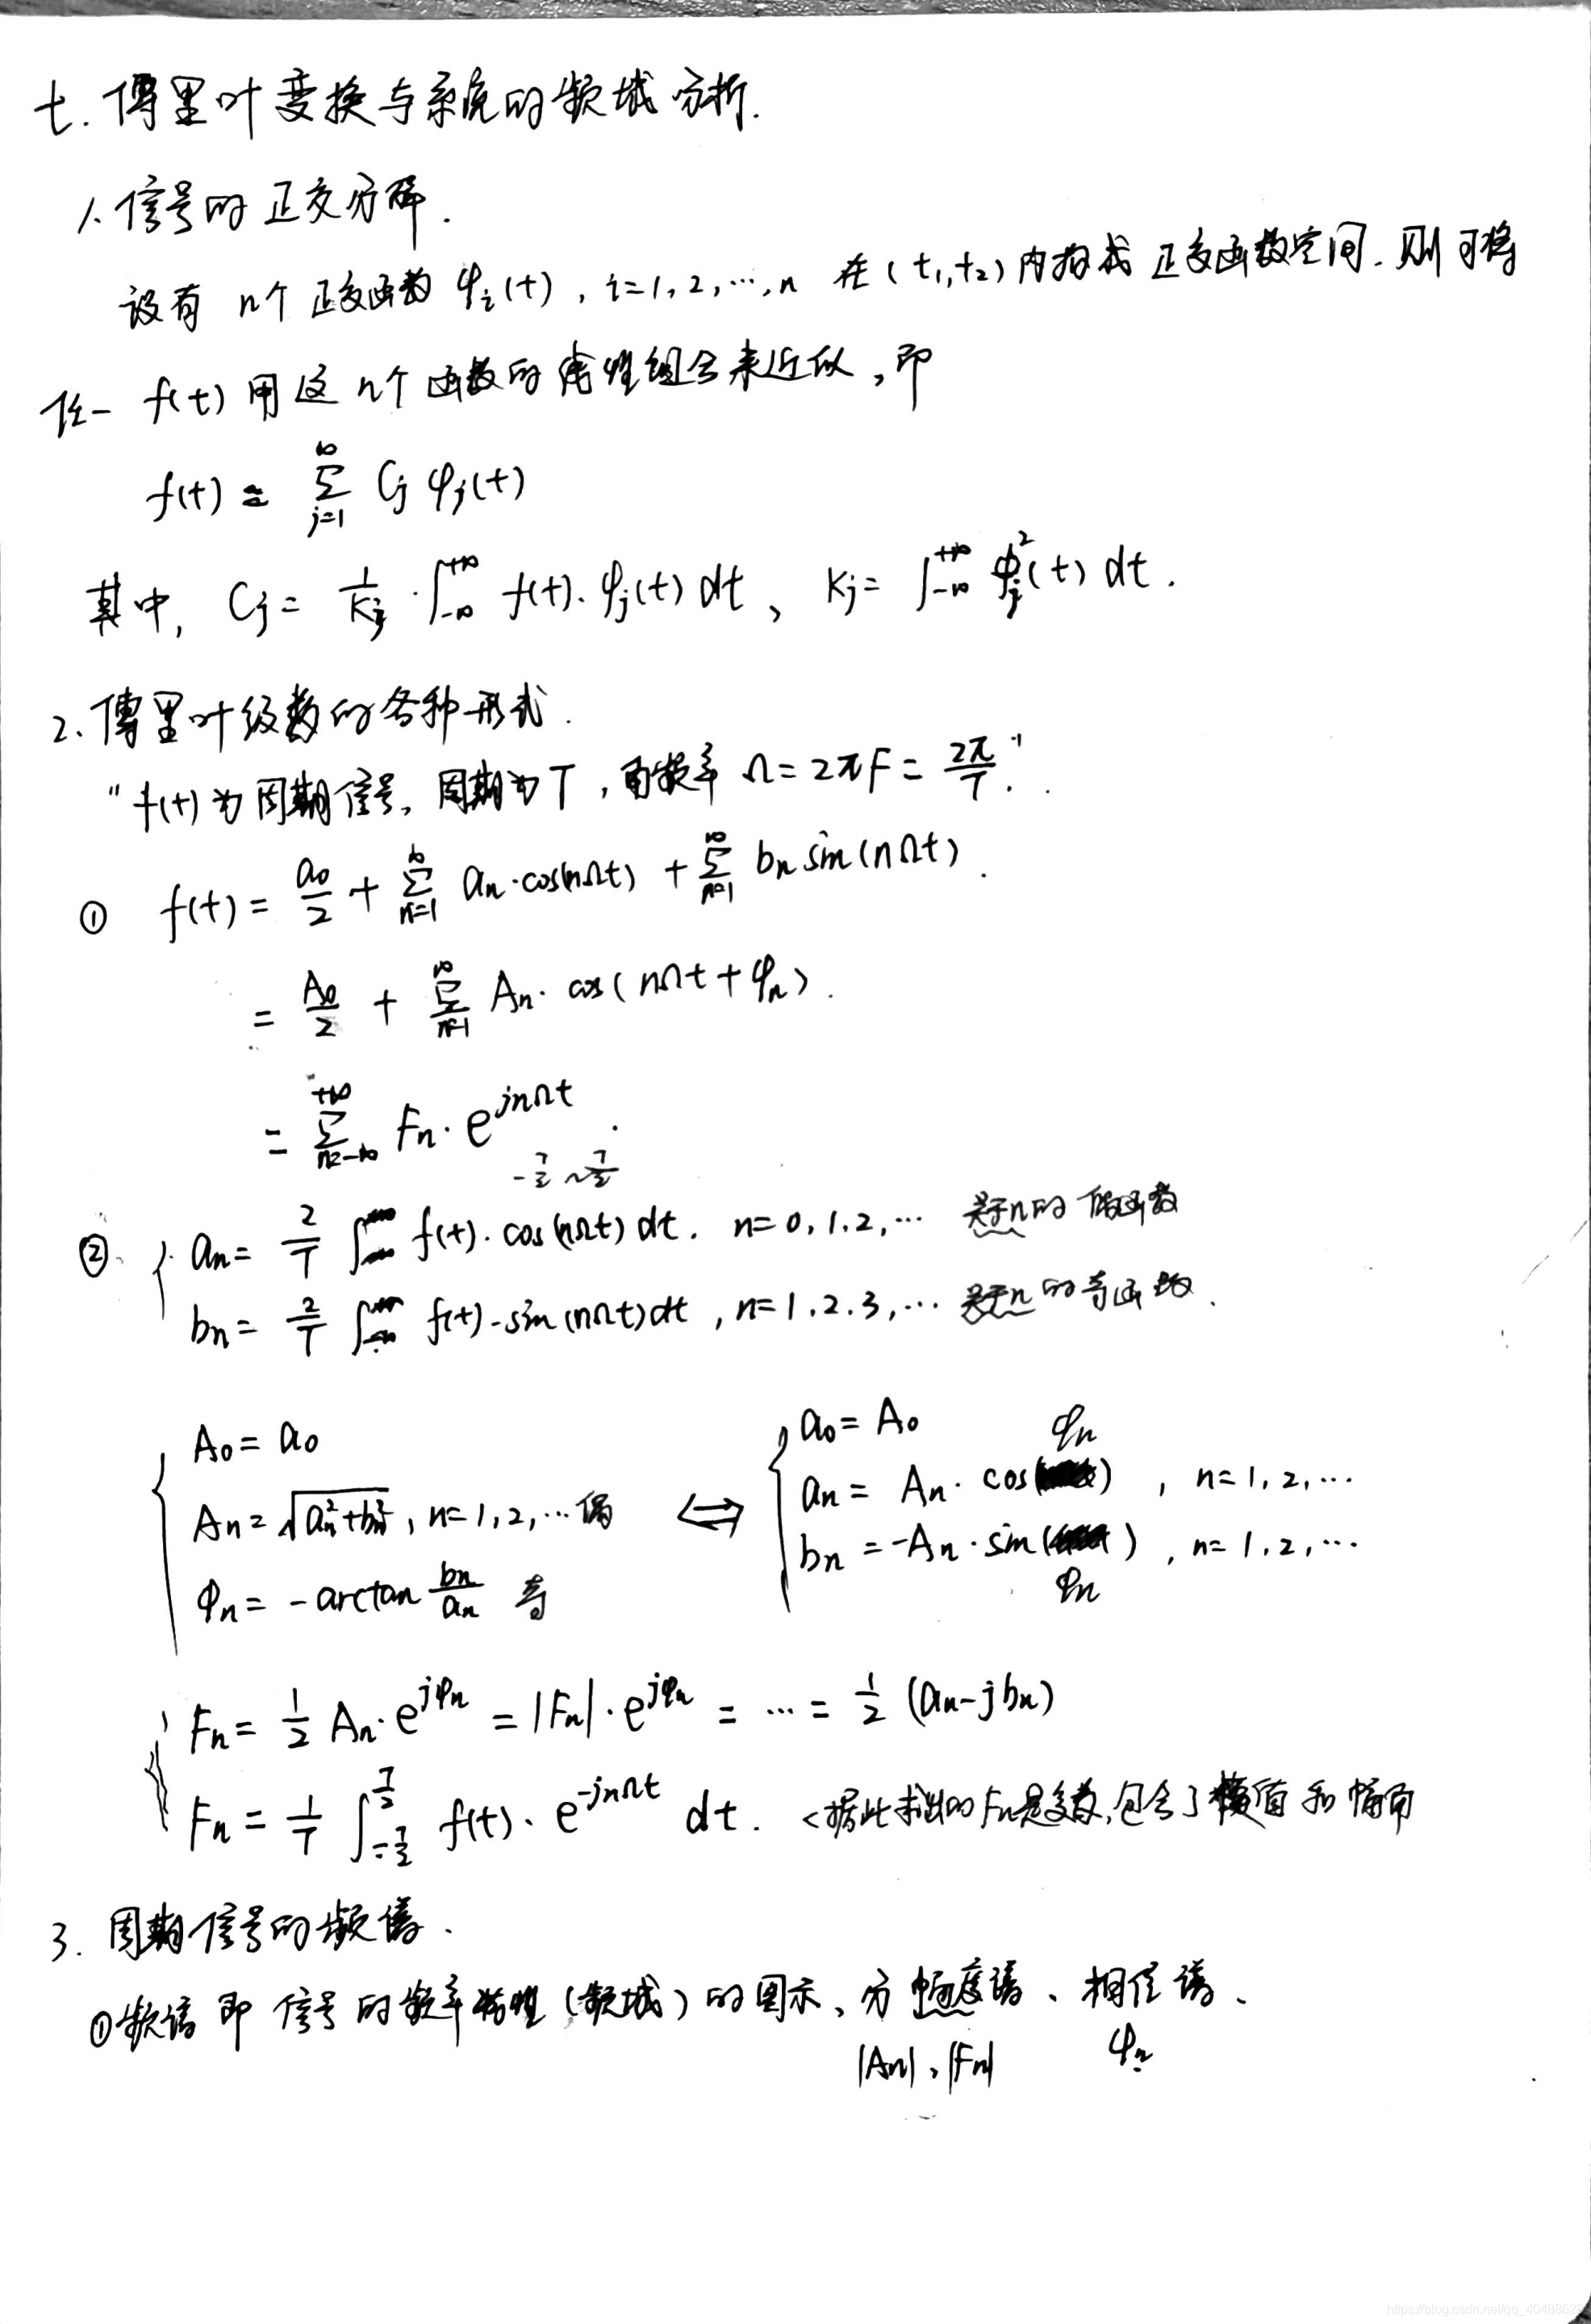 七. 傅里叶变换与系统的频域分析.
1. 信号的正交分解.
设有 n个正交函数 φi(t), i=1, 2, …, n 在(t1, t2)内构成正交函数空间. 则可将
任一 f(t) 用这 n个函数的线性组合来近似, 即
f(t) ≈ ∑_{j=1}^{∞} Cj φj(t)
其中, Cj = 1/Kj · ∫_{-∞}^{+∞} f(t)·φj(t) dt, Kj = ∫_{-∞}^{+∞} φj²(t) dt.
2. 傅里叶级数的各种形式.
"f(t)为周期信号, 周期为T, 角频率 Ω = 2πF = 2π/T."
① f(t) = a0/2 + ∑_{n=1}^{∞} an·cos(nΩt) + ∑_{n=1}^{∞} bn sin(nΩt).
= A0/2 + ∑_{n=1}^{∞} An·cos(nΩt+φn).
= ∑_{n=-∞}^{+∞} Fn·e^{jnΩt}.
-T/2 ~ T/2
② an = 2/T ∫ f(t)·cos(nΩt) dt. n=0, 1, 2, … 是于n的偶函数
bn = 2/T ∫ f(t)·sin(nΩt) dt, n=1. 2. 3, … 是于n的奇函数.
A0 = a0
An = √(an²+bn²), n=1, 2, … 偶
φn = -arctan bn/an 奇
⟺
a0 = A0
an = An·cos(φn), n=1, 2, …
bn = -An·sin(φn), n=1, 2, …
Fn = 1/2 An·e^{jφn} = |Fn|·e^{jφn} = … = 1/2 (an-jbn)
Fn = 1/T ∫_{-T/2}^{T/2} f(t)·e^{-jnΩt} dt. <据此求出的Fn是复数, 包含了模值和幅角
3. 周期信号的频谱.
①频谱即信号的频率特性(频域)的图示, 分幅度谱、相位谱.
|An|, |Fn| φn
https://blog.csdn.net/qq_4048862